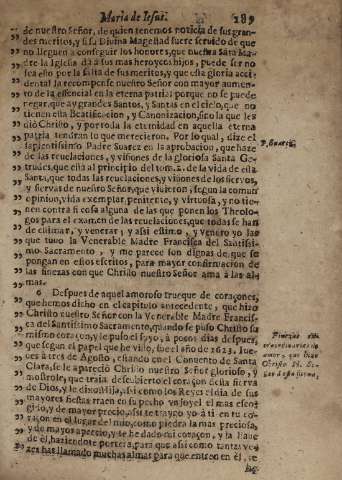 Maria de Iesus. 189
de nuestro Señor, de quien tenemos noticia de sus gran-
des meritos, y si su Divina Magestad fuere servido de que
no lleguen a conseguir los honores, que nuestra Santa Ma-
dre la Iglesia dà a sus mas heroycos hijos, puede ser no
sea esto por la falta de sus meritos, y que esta gloria acci-
dental la recompense nuestro Señor con mayor aumen-
to de la essencial en la eterna patria: porque no se puede
negar, que ay grandes Santos, y Santas en el cielo, que no
tienen esta Beatificacion, y Canonizacion, sino la que les
diò Christo, y por toda la eternidad en aquella eterna
patria tendràn lo que merecieron. Por lo qual, dize el
sapientissimo Padre Suarez en la aprobacion, que haze
de las revelaciones, y visiones de la gloriosa Santa Ge-
trudes, que està al principio del tom. 2. de la vida de esta
Santa, que todas las revelaciones, y visiones de los siervos,
y siervas de nuestro Señor, que vivieron, segun la comun
opinion, vida exemplar, penitente, y virtuosa, y no tie-
nen contra si cosa alguna de las que ponen los Theolo-
gos para el examen de las revelaciones, que todas se han
de estimar, y venerar; y assi estimo, y venero yo las
que tuvo la Venerable Madre Francisca del Santissi-
mo Sacramento, y me parece son dignas de que se
pongan en estos escritos, para mayor confirmacion de
las finezas con que Christo nuestro Señor ama à las al-
mas.
6 Despues de aquel amoroso trueque de coraçones,
que hemos dicho en el capitulo antecedente, que hizo
Christo nuestro Señor con la Venerable Madre Francis-
ca del Santissimo Sacramento, quando se puso Christo su
mismo coraçon, y le puso el suyo, à pocos dias despues,
que segun el papel que he visto, fue el año de 1623. Jue-
ves à tres de Agosto, estando en el Convento de Santa
Clara, se le apareciò Christo nuestro Señor glorioso, y
mostrole, que traia descubierto el coraçon desta sierva
de Dios, y le dixo: Hija, assi como los Reyes el dia de sus
mayores fiestas traen en su pecho un joyel el mas esco-
gido, y de mayor precio, assi te traygo yo à ti en tu co-
raçon en el lugar del mio, como piedra la mas preciosa,
y de mayor aprecio, y se he dado mi coraçon, y la llave
de èl, haziendote portera, para que assi como tantas ve-
zes has llamado muchas almas para que entren en èl, te
P. Suarez.
amor, que hizo
Christo N. Se-